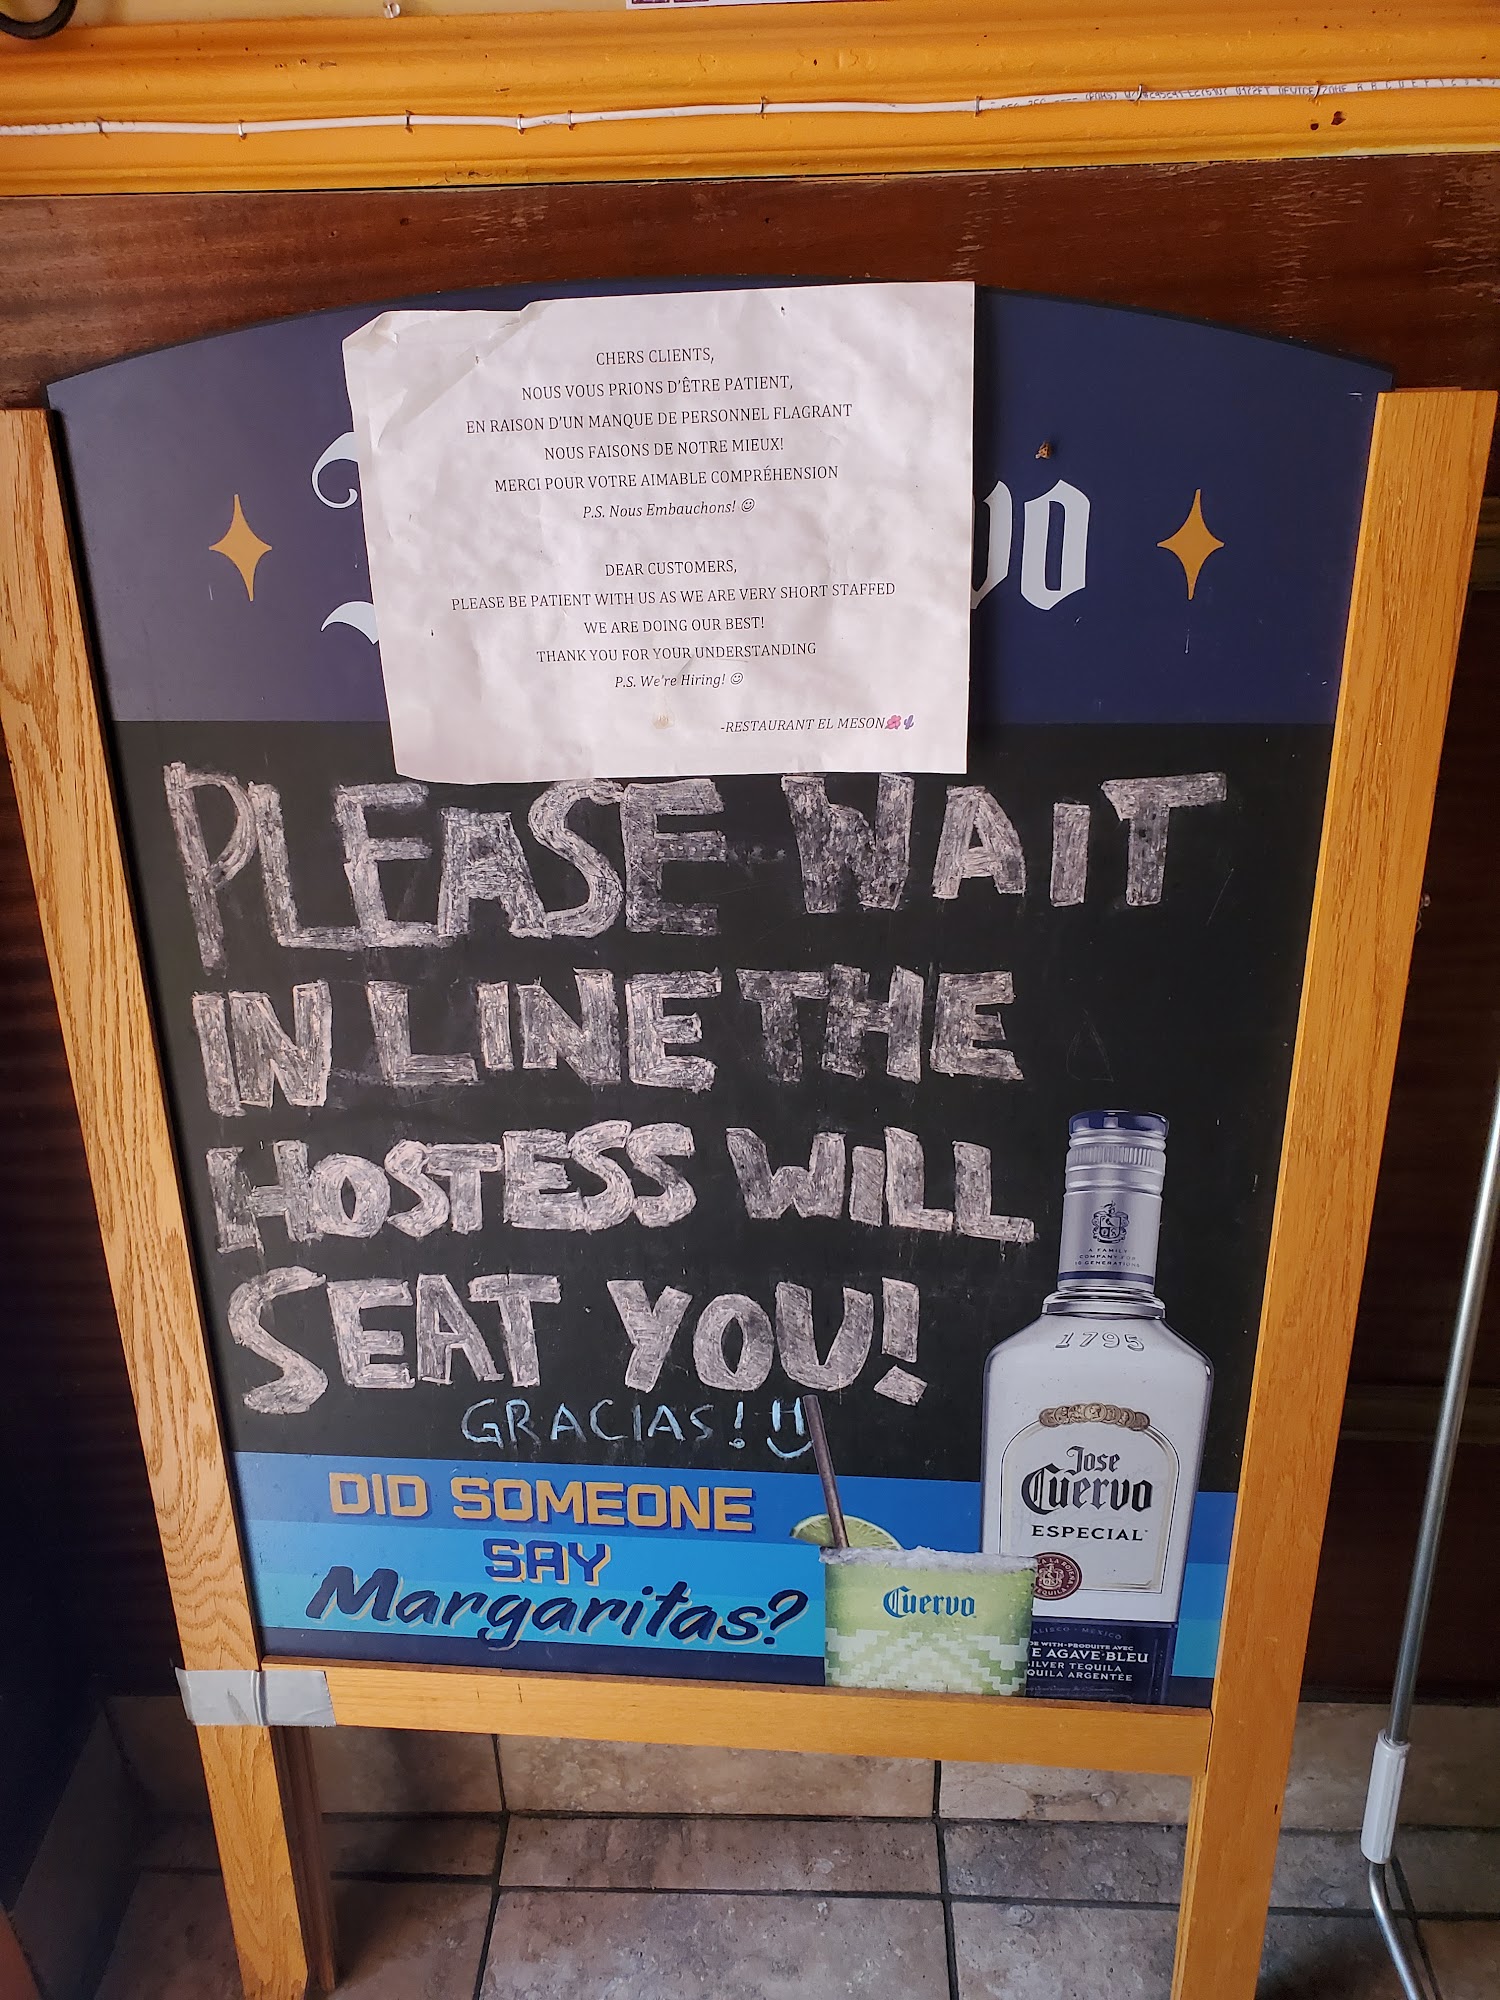 CHERS CLIENTS,
NOUS VOUS PRIONS D'ÊTRE PATIENT,
EN RAISON D'UN MANQUE DE PERSONNEL FLAGRANT
NOUS FAISONS DE NOTRE MIEUX!
MERCI POUR VOTRE AIMABLE COMPRÉHENSION
P.S. Nous Embauchons! ☺
DEAR CUSTOMERS,
PLEASE BE PATIENT WITH US AS WE ARE VERY SHORT STAFFED
WE ARE DOING OUR BEST!
THANK YOU FOR YOUR UNDERSTANDING
P.S. We're Hiring! ☺
-RESTAURANT EL MESON🌺🌵
PLEASE WAIT
IN LINE THE
HOSTESS WILL
SEAT YOU!
GRACIAS!
DID SOMEONE
SAY
Margaritas?
Cuervo
A FAMILY
COMPANY FOR
10 GENERATIONS
1795
Jose
Cuervo
ESPECIAL
MEXICO
WITH•PRODUITE AVEC
E AGAVE•BLEU
SILVER TEQUILA
QUILA ARGENTÉE